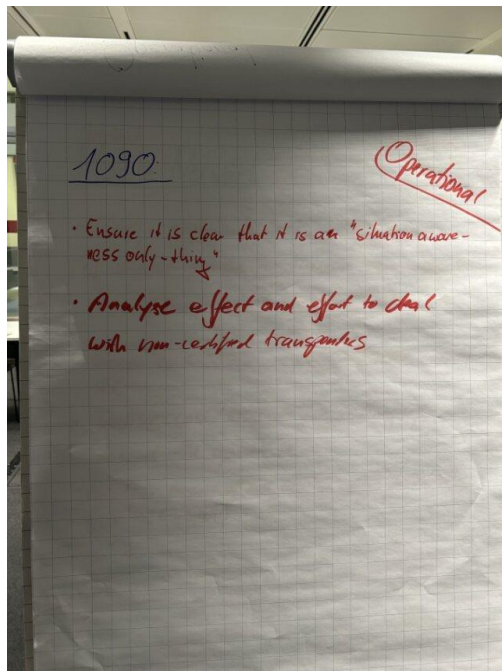 1090:
Operational
• Ensure it is clear that it is an "situation aware-
ness only-thing"
• Analyse effect and effort to deal
with non-certified transponders